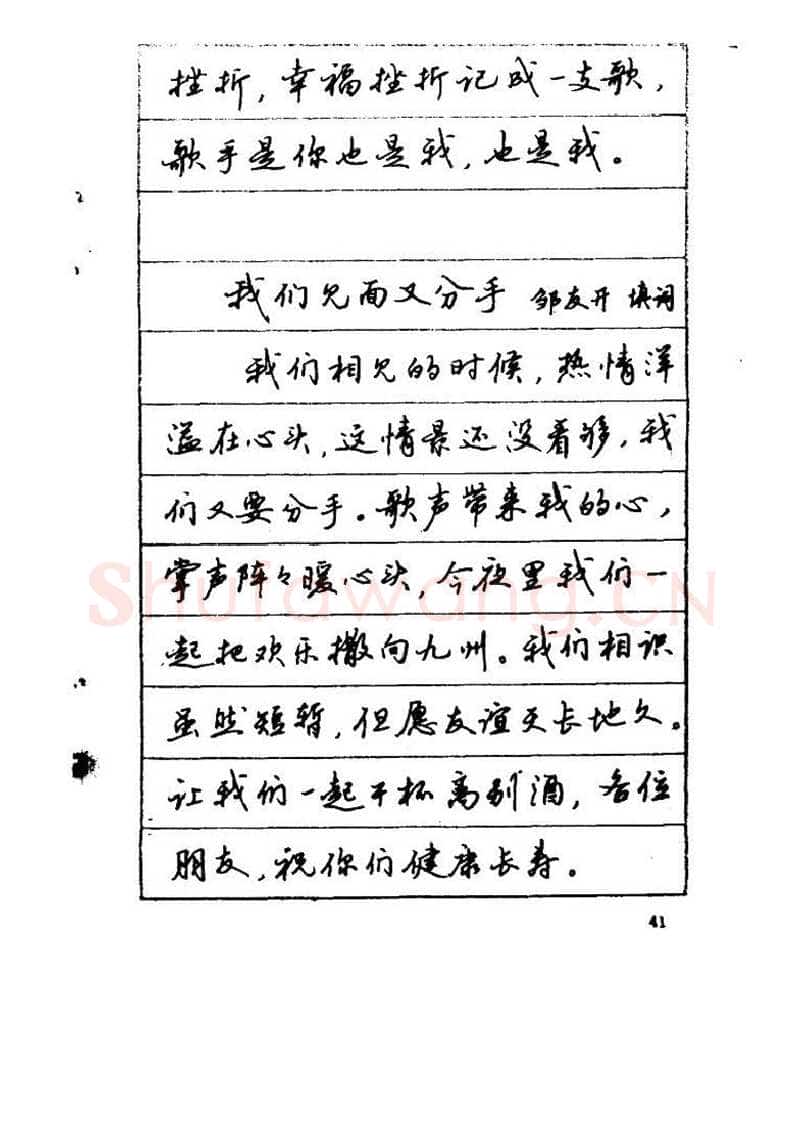 挫折，幸福挫折记成一支歌，
歌手是你也是我，也是我。
我们见面又分手 邹友开 填词
我们相见的时候，热情洋
溢在心头，这情景还没看够，我
们又要分手。歌声带来我的心，
掌声阵々暖心头，今夜里我们一
起把欢乐撒向九州。我们相识
虽然短暂，但愿友谊天长地久。
让我们一起干杯离别酒，各位
朋友，祝你们健康长寿。
41
Shufawang.CN